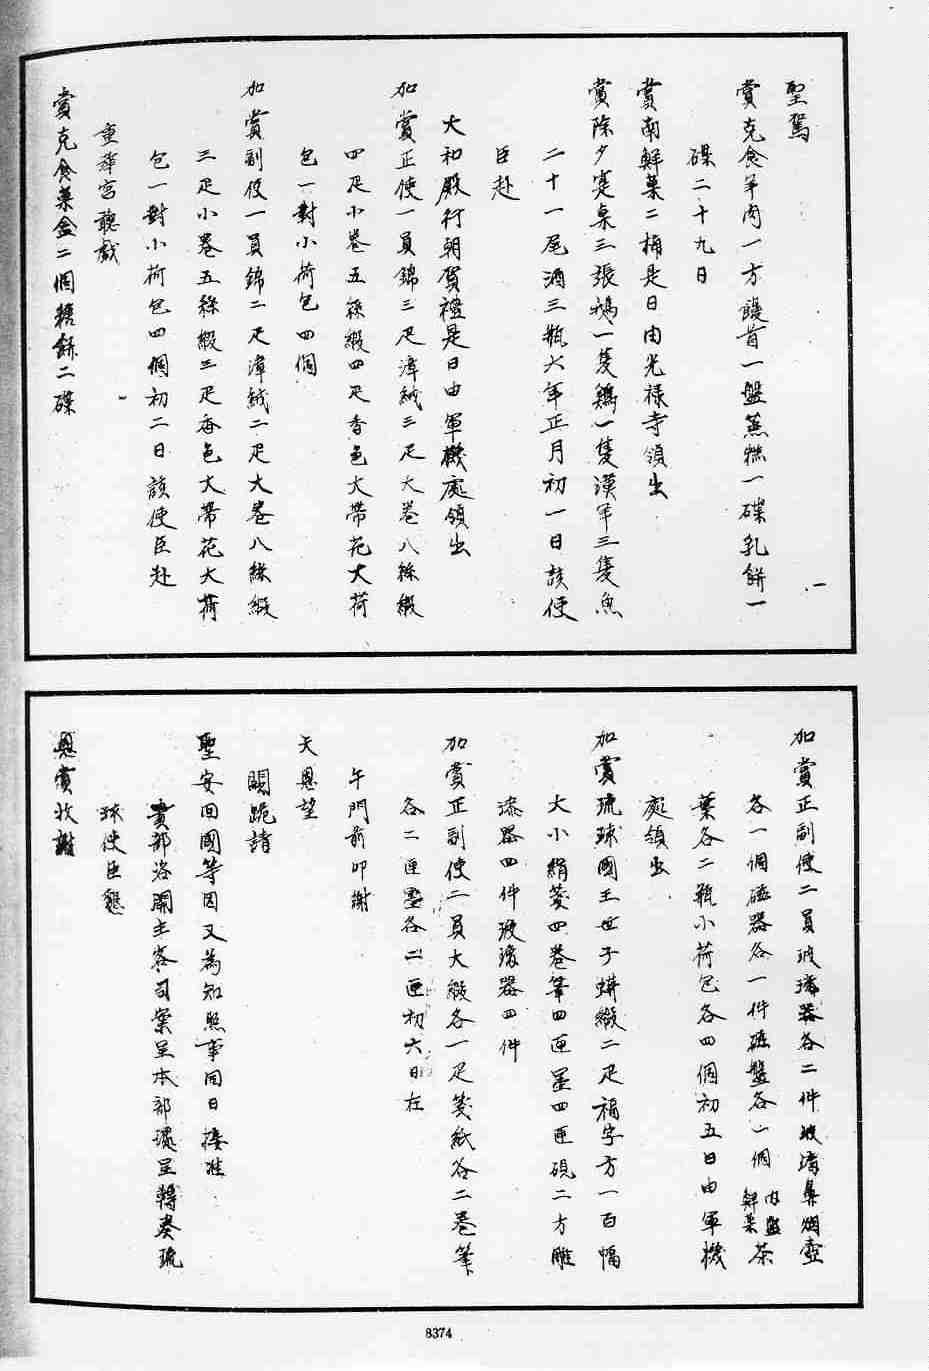 聖駕
賞克食羊肉一方饅首一盤蒸糕一碟乳餅一
碟二十九日
賞南鮮菓二桶是日由光祿寺領出
賞除夕宴桌三張鵝一隻鷄一隻漢羊三隻魚
二十一尾酒三瓶六年正月初一日該使
臣赴
太和殿行朝賀禮是日由軍機處領出
加賞正使一員錦三疋漳絨三疋大卷八絲緞
四疋小卷五絲緞四疋香色大帶花大荷
包一對小荷包四個
加賞副使一員錦二疋漳絨二疋大卷八絲緞
三疋小卷五絲緞三疋香色大帶花大荷
包一對小荷包四個初二日該使臣赴
重華宮聽戲
賞克食菓盒二個糖餅二碟
加賞正副使二員玻璃器各二件玻璃鼻烟壺
各一個磁器各一件磁盤各一個內盛鮮菓茶
葉各二瓶小荷包各四個初五日由軍機
處領出
加賞琉球國王世子蟒緞二疋福字方一百幅
大小絹箋四卷筆四匣墨四匣硯二方雕
漆器四件玻璃器四件
加賞正副使二員大緞各一疋箋紙各二卷筆
各二匣墨各二匣初六日在
午門前叩謝
天恩望
闕跪請
聖安回國等因又為知照事同日接准
貴部洛開主客司案呈本部還呈轉奏琉
球使臣懇
恩賞收謝
8374